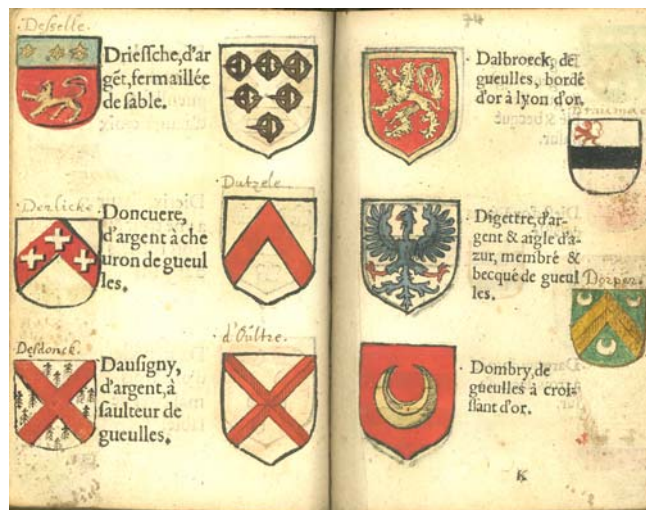 Desselle.
Driessche, d'ar
gẽt, fermaillée
de sable.
Derlicke.
Dutzele.
Doncuere,
d'argent à che
uron de gueul
les.
Desdonck.
d'Oultre.
Dausigny,
d'argent, à
saulteur de
gueulles.
74
Dalbroeck, de
gueulles, bordé
d'or à lyon d'or.
Digettre, d'ar-
gent & aigle d'a-
zur, membré &
becqué de gueul
les.
Dorper.
Dombry, de
gueulles à crois-
sant d'or.
K